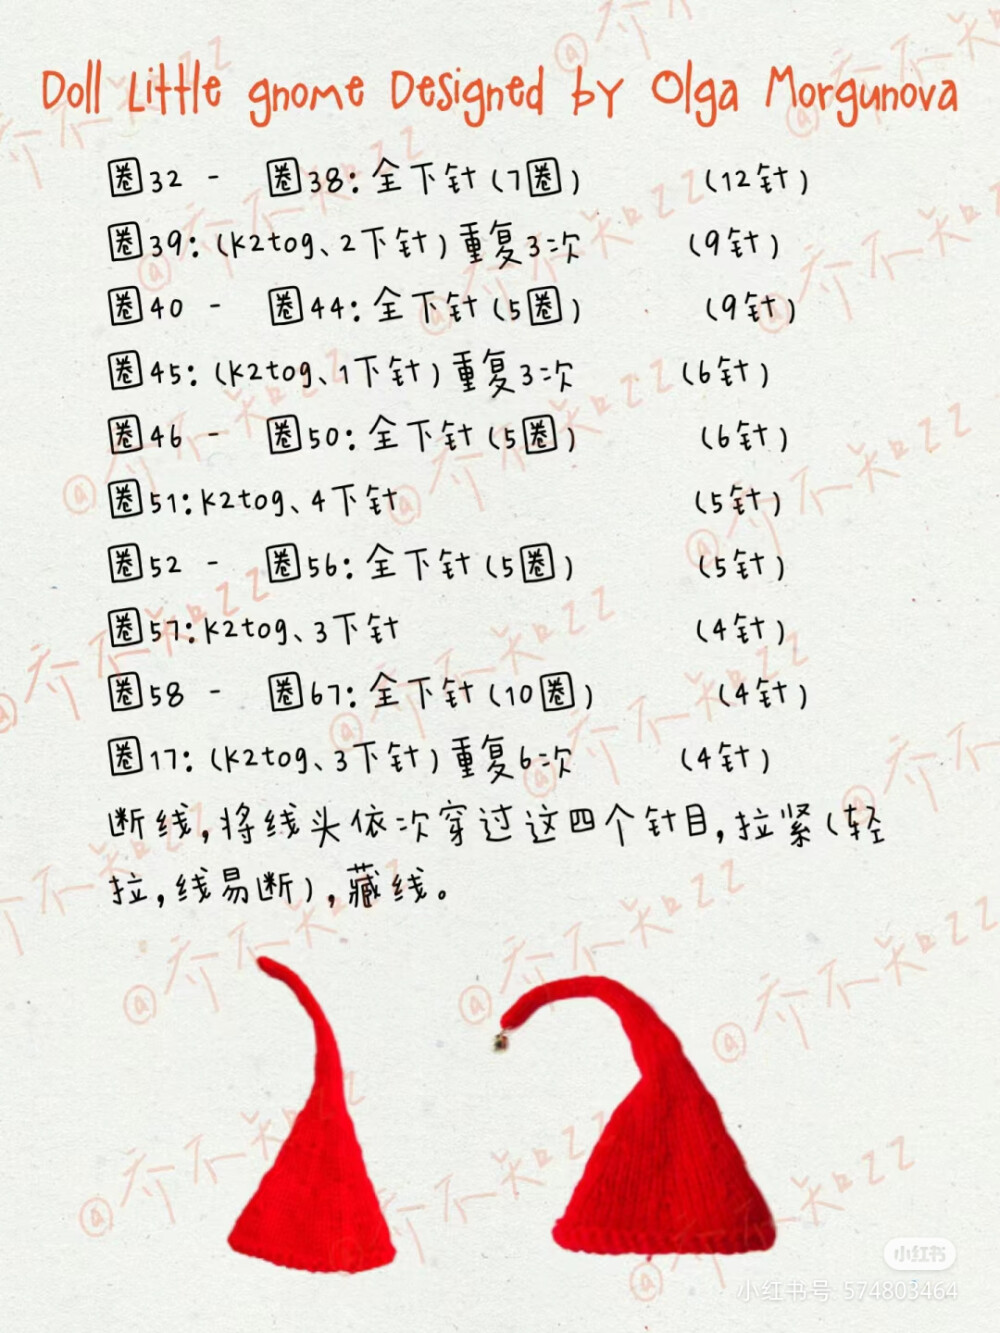 Doll Little gnome Designed by Olga Morgunova
圈32 - 圈38:全下针(7圈) (12针)
圈39:(K2tog、2下针)重复3次 (9针)
圈40 - 圈44:全下针(5圈) (9针)
圈45:(K2tog、1下针)重复3次 (6针)
圈46 - 圈50:全下针(5圈) (6针)
圈51:K2tog、4下针 (5针)
圈52 - 圈56:全下针(5圈) (5针)
圈57:K2tog、3下针 (4针)
圈58 - 圈67:全下针(10圈) (4针)
圈17:(K2tog、3下针)重复6次 (4针)
断线,将线头依次穿过这四个针目,拉紧(轻
拉,线易断),藏线。
小红书
小红书号: 574803464